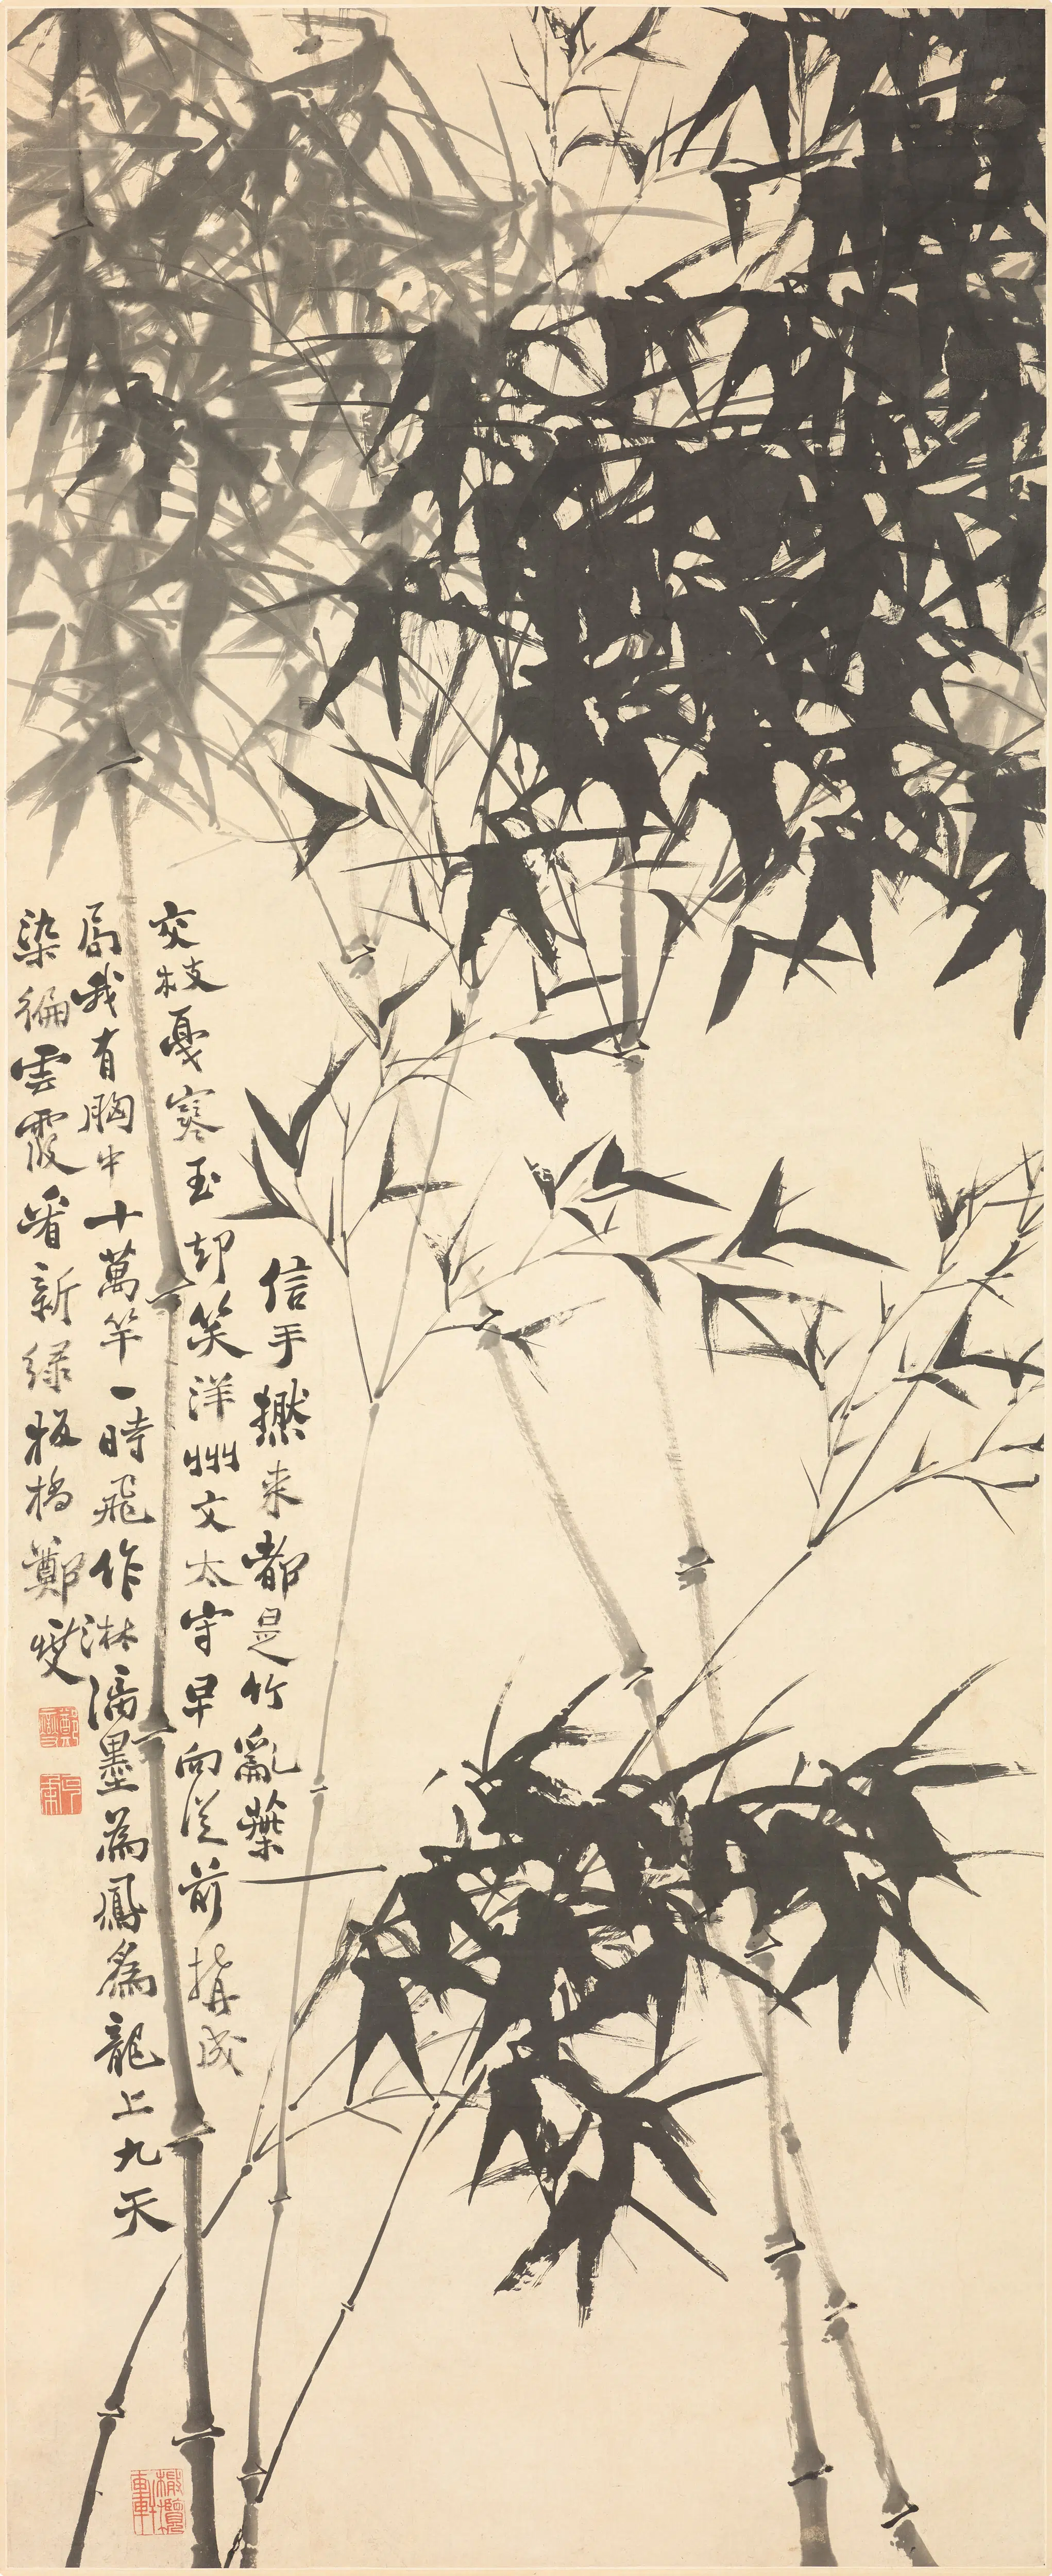 信手撚来都是竹亂葉
交枝戞寒玉却笑洋州文太守早向从前搆成
局我有胸中十萬竿一時飛作淋漓墨為鳳為龍上九天
染徧雲霞看新綠板橋鄭燮